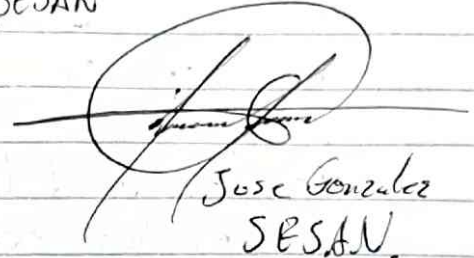 SESAN
Jose Gonzalez
SESAN.